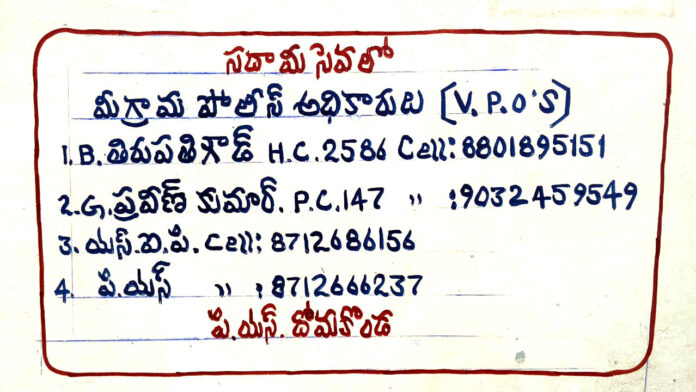 సదా మీ సేవలో
మీ గ్రామ పోలీస్ అధికారులు (V.P.O'S)
1. B. తిరుపతి గౌడ్ H.C. 2586 Cell: 8801895151
2. G. ప్రవీణ్ కుమార్. P.C. 147 " : 9032459549
3. యస్.ఐ.పి. Cell: 8712686156
4. పి.యస్ " : 8712666237
పి.యస్. దోమకొండ